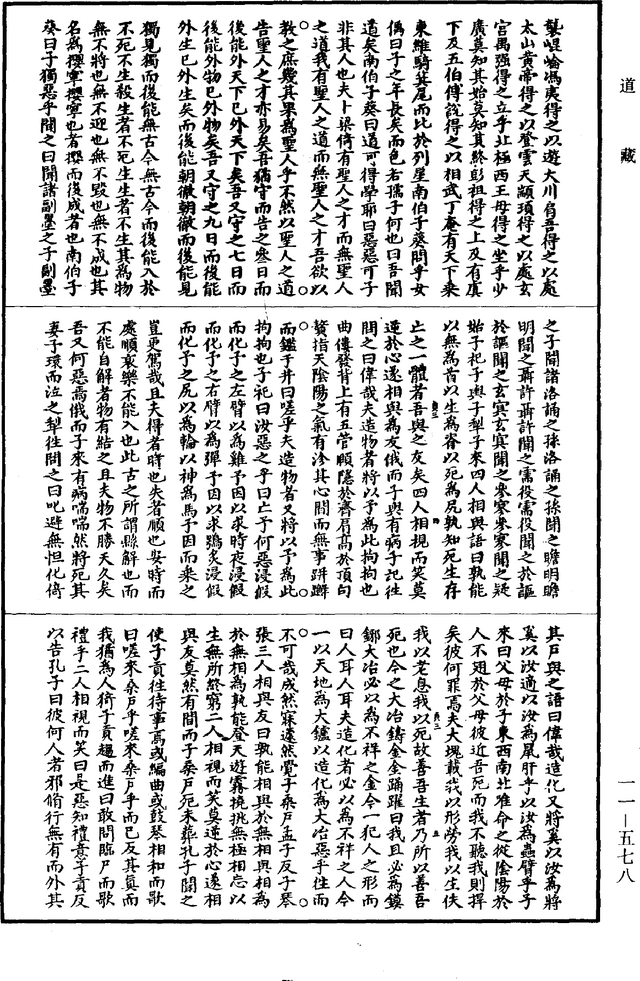 道藏
襲崐崘馮夷得之以遊大川肩吾得之以處
太山黄帝得之以登雲天顓頊得之以處玄
宫禺强得之立乎北極西王母得之坐乎少
廣莫知其始莫知其終彭祖得之上及有虞
下及五伯傅説得之以相武丁奄有天下乘
東維騎箕尾而比於列星南伯子葵問乎女
偊曰子之年長矣而色若孺子何也曰吾聞
道矣南伯子葵曰道可得學耶曰惡惡可子
非其人也夫卜梁倚有聖人之才而無聖人
之道我有聖人之道而無聖人之才吾欲以
教之庶幾其果爲聖人乎不然以聖人之道
告聖人之才亦易矣吾猶守而告之叁日而
後能外天下已外天下矣吾又守之七日而
後能外物已外物矣吾又守之九日而後能
外生已外生矣而後能朝徹朝徹而後能見
獨見獨而後能無古今無古今而後能入於
不死不生殺生者不死生生者不生其爲物
無不將也無不迎也無不毁也無不成也其
名爲攖寧攖寧也者攖而後成者也南伯子
葵曰子獨惡乎聞之曰聞諸副墨之子副墨
之子聞諸洛誦之孫洛誦之孫聞之瞻明瞻
明聞之聶許聶許聞之需役需役聞之於謳
於謳聞之玄冥玄冥聞之參寥參寥聞之疑
始子祀子輿子犁子來四人相與語曰孰能
以無爲首以生爲脊以死爲尻孰知死生存
亡之一體者吾與之友矣四人相視而笑莫
逆於心遂相與爲友俄而子輿有病子祀往
問之曰偉哉夫造物者將以予爲此拘拘也
曲僂發背上有五管頤隱於齊肩高於頂句
贅指天陰陽之氣有沴其心閒而無事跰𨇤
而鑑于井曰嗟乎夫造物者又將以予爲此
拘拘也子祀曰汝惡之乎曰亡予何惡浸假
而化予之左臂以爲雞予因以求時夜浸假
而化予之右臂以爲彈予因以求鴞炙浸假
而化予之尻以爲輪以神爲馬予因而乘之
豈更駕哉且夫得者時也失者順也安時而
處順哀樂不能入也此古之所謂縣解也而
不能自解者物有結之且夫物不勝天久矣
吾又何惡焉俄而子來有病喘喘然將死其
妻子環而泣之犁往問之曰叱避無怛化倚
其戸與之語曰偉哉造化又將奚以汝爲將
奚以汝適以汝爲鼠肝乎以汝爲蟲臂乎子
來曰父母於子東西南北唯命之從陰陽於
人不翅於父母彼近吾死而我不聽我則捍
矣彼何罪焉夫大塊載我以形勞我以生佚
我以老息我以死故善吾生者乃所以善吾
死也今之大冶鑄金金踊躍曰我且必爲鏌
鋣大冶必以爲不祥之金今一犯人之形而
曰人耳人耳夫造化者必以爲不祥之人今
一以天地爲大鑪以造化爲大冶惡乎往而
不可哉成然寐蘧然覺子桑戸孟子反子琴
張三人相與友曰孰能相與於無相與相爲
於無相爲孰能登天遊霧撓挑無極相忘以
生無所終窮二人相視而笑莫逆於心遂相
與友莫然有間而子桑戸死未葬孔子聞之
使子貢往待事焉或編曲或鼓琴相和而歌
曰嗟來桑戸乎嗟來桑戸乎而已反其真而
我猶爲人猗子貢趨而進曰敢問臨尸而歌
禮乎二人相視而笑曰是惡知禮意子貢反
以告孔子曰彼何人者邪脩行無有而外其
一一—五七八